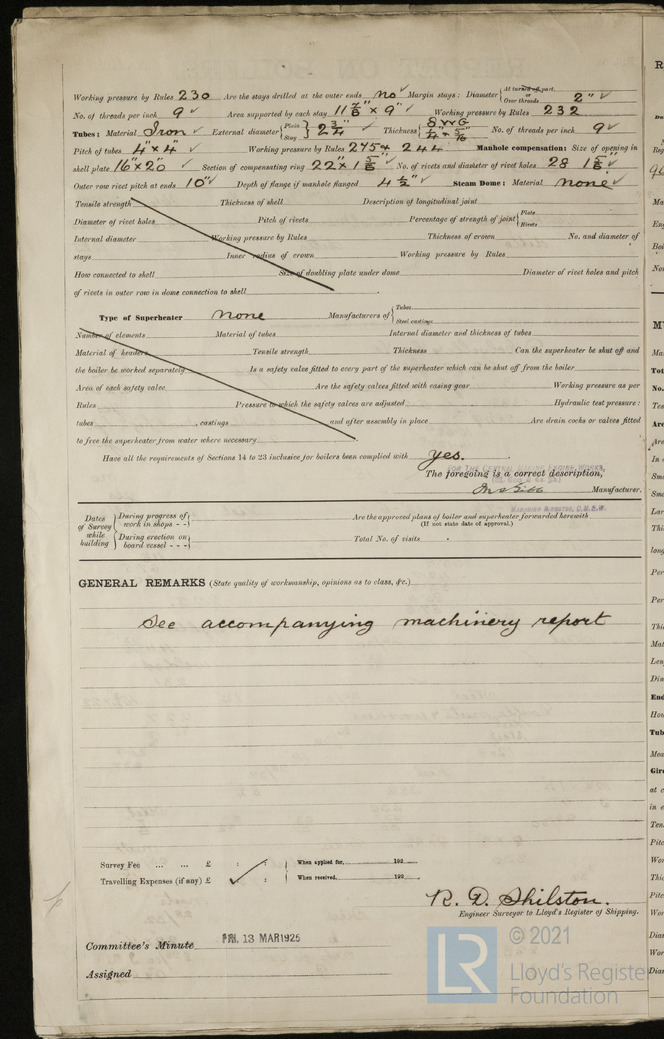 Working pressure by Rules 230 Are the stays drilled at the outer ends no Margin stays: Diameter { At turned off part, or Over threads 2"
No. of threads per inch 9 Area supported by each stay 11 7/8" × 9" Working pressure by Rules 232
Tubes: Material Iron External diameter { Plain Stay } 2 3/4" Thickness { 8 WG 1/4 & 5/16" No. of threads per inch 9
Pitch of tubes 4" × 4" Working pressure by Rules 275 & 244 Manhole compensation: Size of opening in
shell plate 16" × 20" Section of compensating ring 22" × 1 5/8" No. of rivets and diameter of rivet holes 28 1 5/8"
Outer row rivet pitch at ends 10" Depth of flange if manhole flanged 4 1/2" Steam Dome: Material none
Tensile strength Thickness of shell Description of longitudinal joint
Diameter of rivet holes Pitch of rivets Percentage of strength of joint { Plate Rivets
Internal diameter Working pressure by Rules Thickness of crown No. and diameter of
stays Inner radius of crown Working pressure by Rules
How connected to shell Size of doubling plate under dome Diameter of rivet holes and pitch
of rivets in outer row in dome connection to shell
Type of Superheater none Manufacturers of { Tubes Steel castings
Number of elements Material of tubes Internal diameter and thickness of tubes
Material of headers Tensile strength Thickness Can the superheater be shut off and
the boiler be worked separately Is a safety valve fitted to every part of the superheater which can be shut off from the boiler
Area of each safety valve Are the safety valves fitted with easing gear Working pressure as per
Rules Pressure to which the safety valves are adjusted Hydraulic test pressure:
tubes , castings and after assembly in place Are drain cocks or valves fitted
to free the superheater from water where necessary
Have all the requirements of Sections 14 to 23 inclusive for boilers been complied with yes.
FOR THE CENTRAL MARINE ENGINE WORKS,
The foregoing is a correct description,
Manufacturer.
Dates of Survey while building { During progress of work in shops - - Are the approved plans of boiler and superheater forwarded herewith
(If not state date of approval.)
During erection on board vessel - - - Total No. of visits
GENERAL REMARKS (State quality of workmanship, opinions as to class, &c.)
See accompanying machinery report
Survey Fee ... ... £ : : When applied for, 192
Travelling Expenses (if any) £ : : When received, 192
R. D. Shilston.
Engineer Surveyor to Lloyd's Register of Shipping.
Committee's Minute FRI. 13 MAR 1925
Assigned
LR © 2021
Lloyd's Register
Foundation